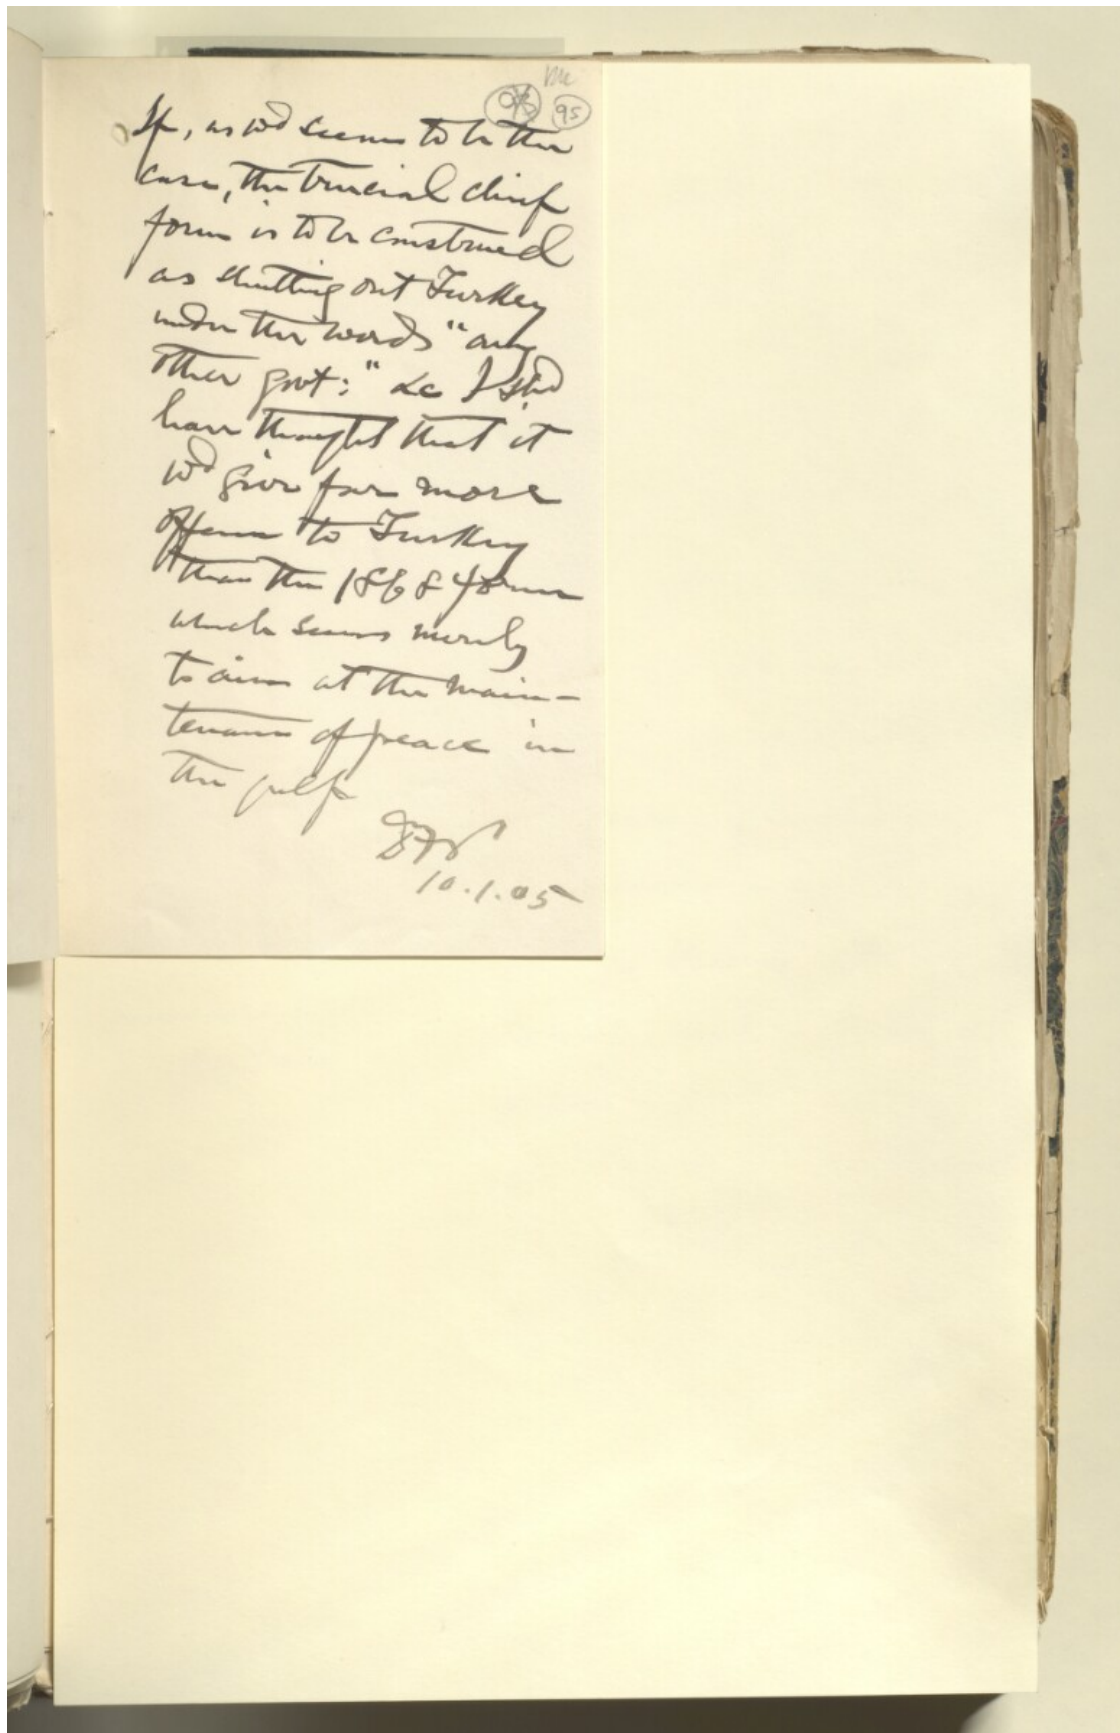 95
If, as wd seem to be the
case, the Trucial chief
form is to be construed
as shutting out Turkey
under the words "any
other govt:" &c I shd
have thought that it
wd give far more
offence to Turkey
than the 1868 form
which seems merely
to aim at the main-
tenance of peace in
the gulf
10.1.05